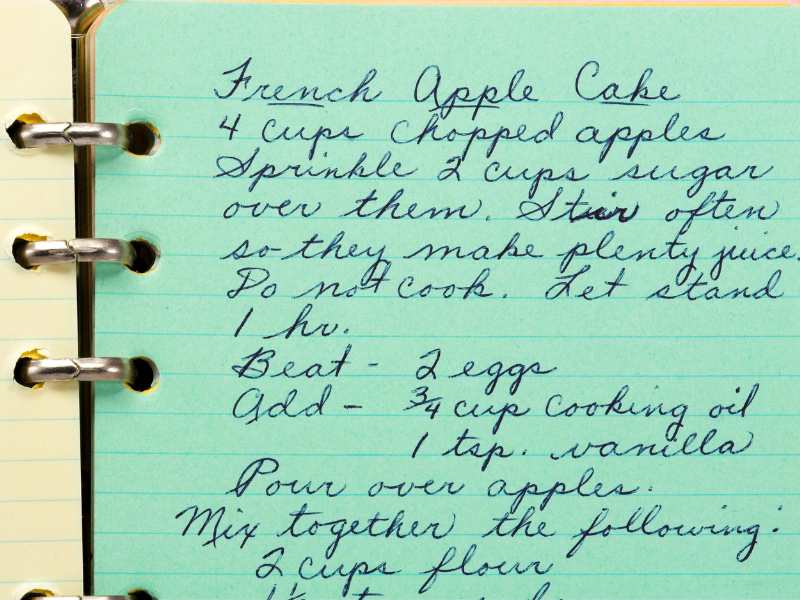 French Apple Cake
4 cups chopped apples
Sprinkle 2 cups sugar
over them. Stir often
so they make plenty juice.
Do not cook. Let stand
1 hr.
Beat - 2 eggs
Add - ¾ cup cooking oil
1 tsp. vanilla
Pour over apples.
Mix together the following:
2 cups flour